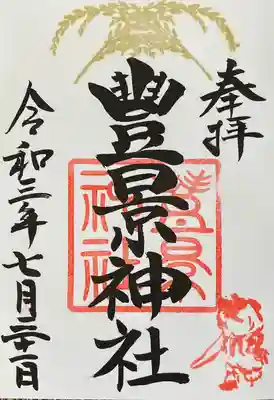 奉拝
豐景神社
豊景
神社
令和三年七月二十一日